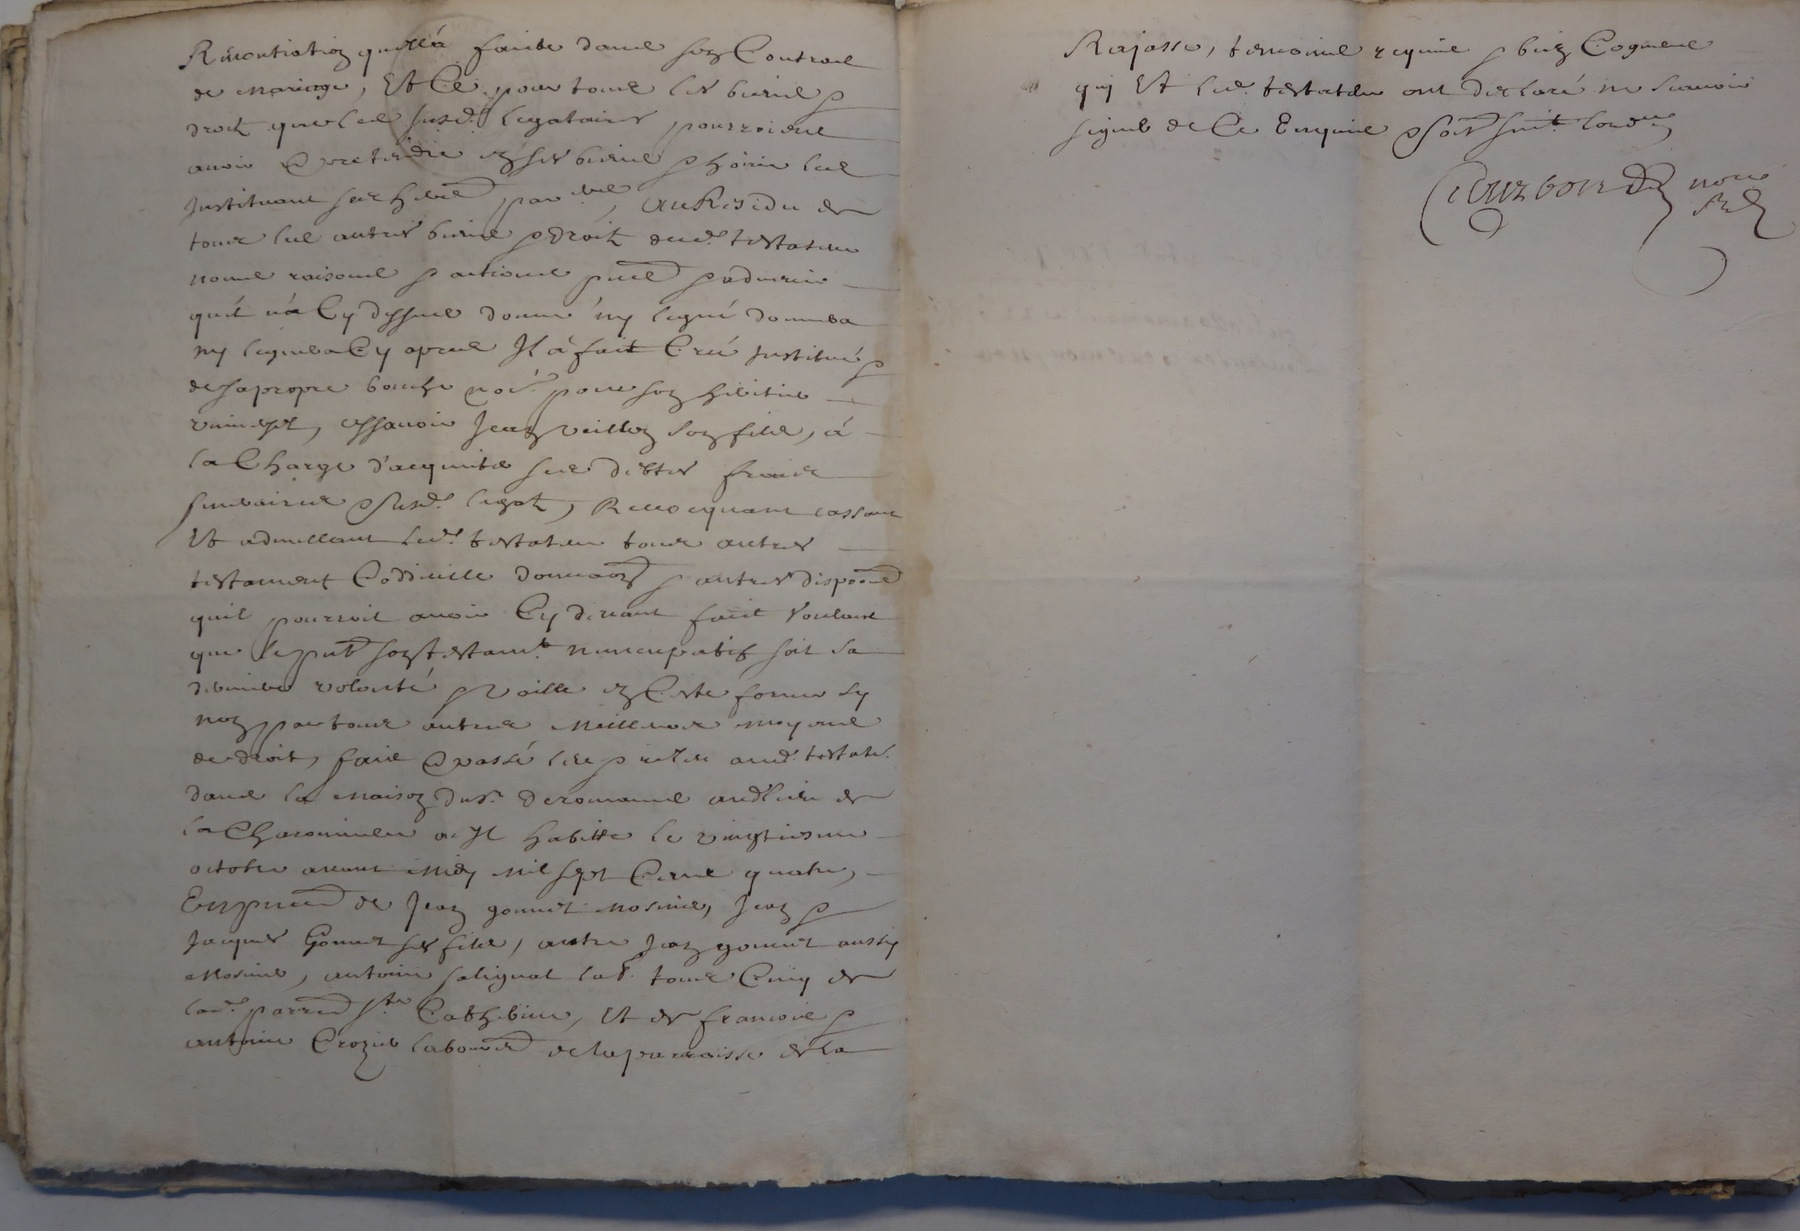 Renontiation quella faicte dans son Contract
de mariage, Et Ce pour tous les biens &
droits que les susd. legataires pourroient
avoir & pretendre en ses biens & hoirie les
Instituant ses herers par , Au Residu de
tous les autres biens & droits dud. testateur
noms raisons & actions pnts & advenir
quil n'a Cy dessus donné ny legué donnera
ny leguera Cy apres Il à fait Créé Institué &
de sa propre bouche pour son heritier
univerel, assavoir Jean veillon son fils, à
la Charge d'acquiter ses debtes frais
funeraires & susd. legats, Revocquant cassant
Et adnullant led. testateur tous autres
testament Codicille donnaons & autres disposons
quil pourroit avoir Cy devant fait Voulant
que le pnt son testamt. nuncupatif soit sa
derniere volonté & vaille en Ceste forme sy
non par tous autres meilleurs moyens
de droit, faict & passé les aud. testatr.
dans la maison du sr. deromanes aud. lieu de
la Charomiere ou Il habitte le vingtiesme
octobre avant midy mil sept Cents quatre,
En pnce de Jean gonnet mosnier, Jean &
Jacques Gonnet ses fils, autre Jean gonnet aussy
Mosnier, antoine salignat lab. tous Cinq de
lad. parroe ste Catherine, Et de francois &
antoine Crozier laboure de la parroisse de la
Rajasse, temoins requis & bien Cogneus
qui Et led. testateur ont declaré ne scavoir
signer de Ce Enquis & soit
Courbon no.re
R.